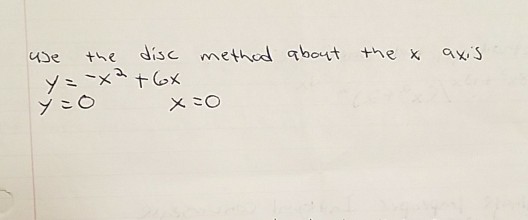 use the disc method about the x axis
y = -x² + 6x
y = 0 x = 0